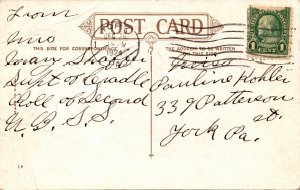 From
POST CARD
THIS SIDE FOR CORRESPONDENCE
THE ADDRESS TO BE WRITTEN
ON THIS SIDE
Mrs
Supt of Cradle
Roll of Second
U. B. S. S.
Pauline Kohler
339 Patterson
st.
York Pa.
1924
1
1
14